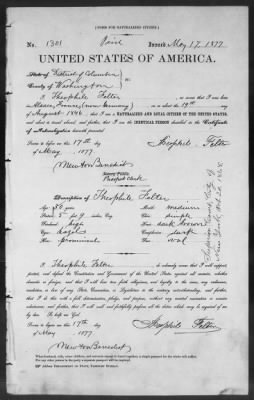 [FORM FOR NATURALIZED CITIZEN.]
No. 1301 Issued May 17, 1877
UNITED STATES OF AMERICA.
State of District of Columbia
County of Washington
I, Theophile Felter, do swear that I was born in
Alsace, France (now Germany) on or about the 19th day
of August 1846; that I am a NATURALIZED AND LOYAL CITIZEN OF THE UNITED STATES,
and about to travel abroad; and further, that I am the IDENTICAL PERSON described in the Certificate
of Naturalization herewith presented.
Sworn to before me this 17th day
of May, 1877
Theophile Felter
Newton Benedict
Notary Public.
Passport Clerk
Description of Theophile Felter
Age: 30 years
Mouth: medium
Stature: 5 feet 9 inches, Eng.
Chin: dimple
Forehead: high
Hair: dark brown
Eyes: hazel
Complexion: dark
Nose: prominent
Face: oval
I, Theophile Felter, do solemnly swear that I will support,
protect, and defend the Constitution and Government of the United States against all enemies, whether
domestic or foreign; and that I will bear true faith, allegiance, and loyalty to the same, any ordinance,
resolution or law of any State, Convention, or Legislature to the contrary notwithstanding; and further,
that I do this with a full determination, pledge, and purpose, without any mental reservation or evasion
whatsoever; and further, that I will well and faithfully perform all the duties which may be required of me
by law. So help me God.
Sworn to before me this 17th day
of May, 1877
Theophile Felter
Newton Benedict
Superior Court, City of
New York,